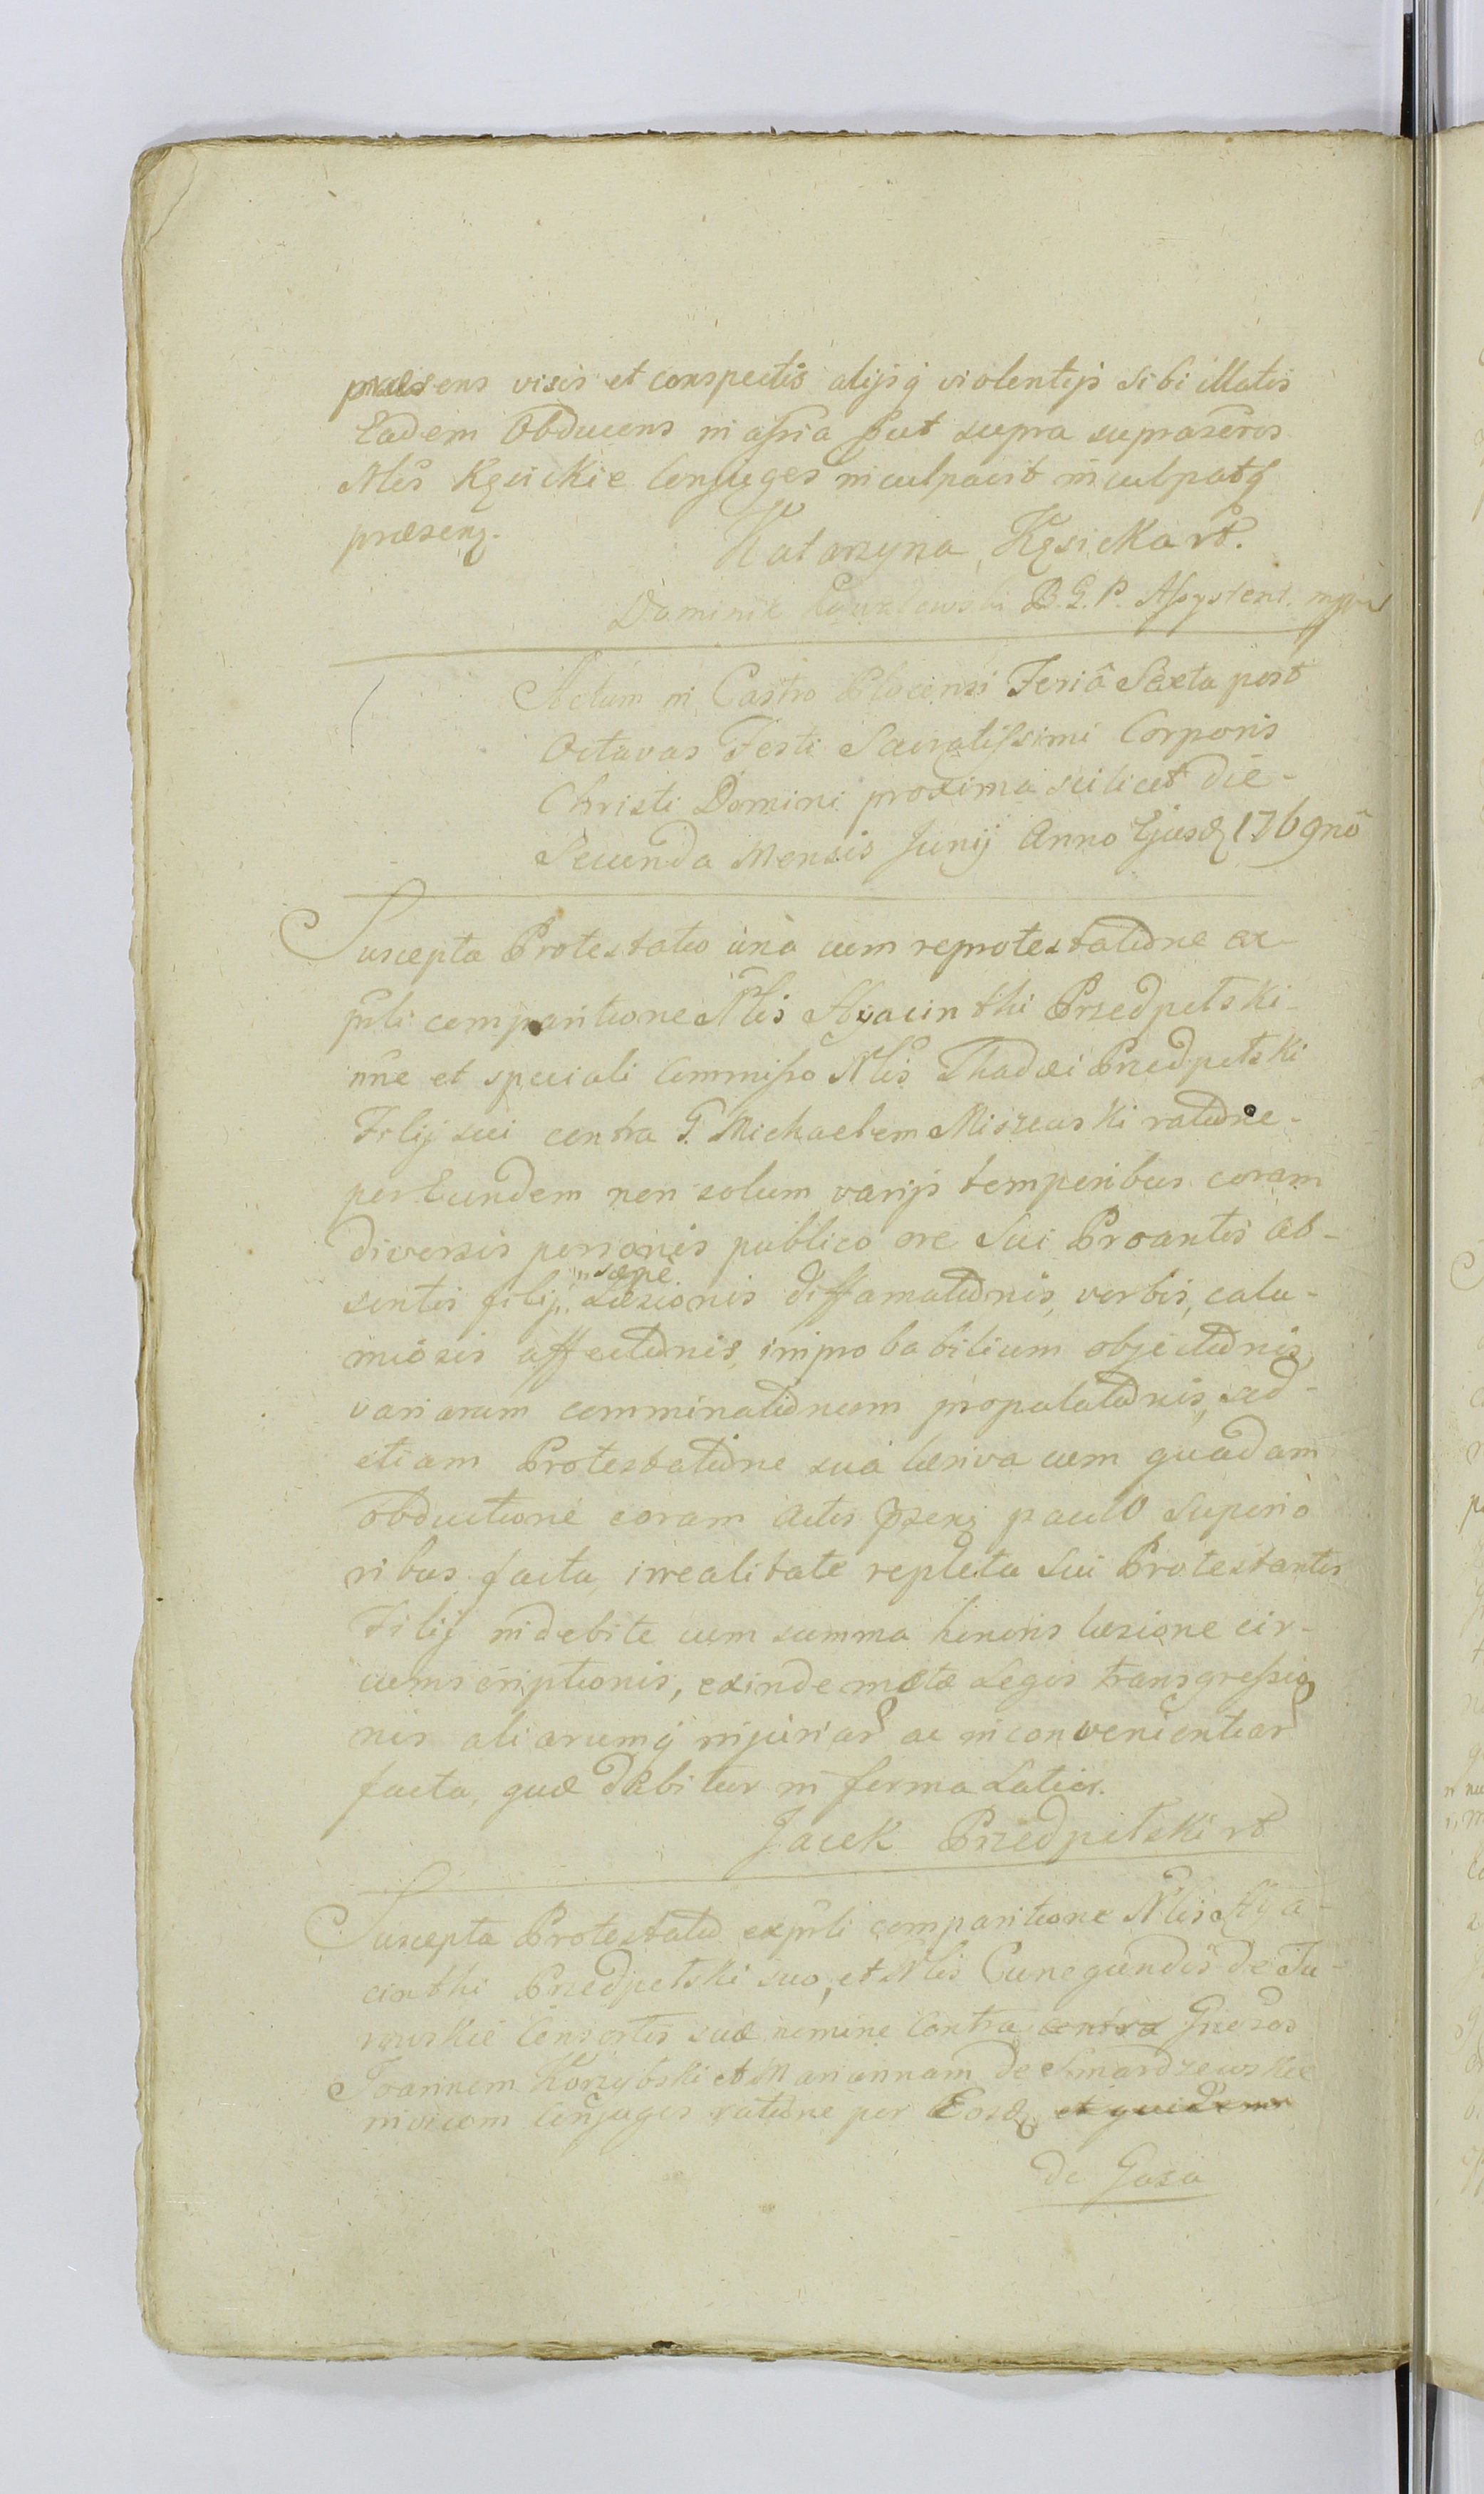 præsens visis et conspectis alijsq violentijs sibi illatis
Eadem Obducens in assia put supra suprascros
Nles Kęsickie Conjuges inculpavit inculpatq
præsenz.
Katarzyna Kęsicka rt.
Dominik B. G. P. Assystent. mppr
Actum in Castro Plocensi Feriâ Sexta post
Octavas Festi Sacratissimi Corporis
Christi Domini proxima scilicet die
Secunda Mensis Junij Anno Ejusd 1769nô
Suscepta Protestatio unà cum reprotestatione ex
psli comparitione Nlis Hyacinthi Przedpełski
nne et speciali Commisso Nlis Thadæi Przedpełski
Filij sui contra G. Michaelem Miszewski ratione
per Eundem non solum varijs temporibus coram
diversis personis publico ore Sui Proantis ab-
sentis filij " sæpè. Læsionis diffamationis, verbis, calu-
mniosis affectionis, improbabilium objectionis,
variarum comminationum propalationis, sed
etiam Protestatione sua læsiva cum quadam
obductione coram Actis pzenz paulo Superio
ribus facta irrealitate repleta Sui Protestantis
Filij indebite cum summa honoris læsione cir-
cumscriptionis, exinde motæ Legis transgressio
nis aliarumq injuriar ac inconvenientiar
facta, quæ dabitur in forma Latior.
Jacek Przedpełski rt
Suscepta Protestatio expsli comparitione Nlis Hya-
cinthi Przedpełski suo, et Nlis Cunegundis de Tu-
rowskie Consortis suæ nomine Contra contra Gnosos
Joannem Korzybski et Mariannam de Smardzewskie
invicem Conjuges ratione per Eosd et quidem
de Gaza